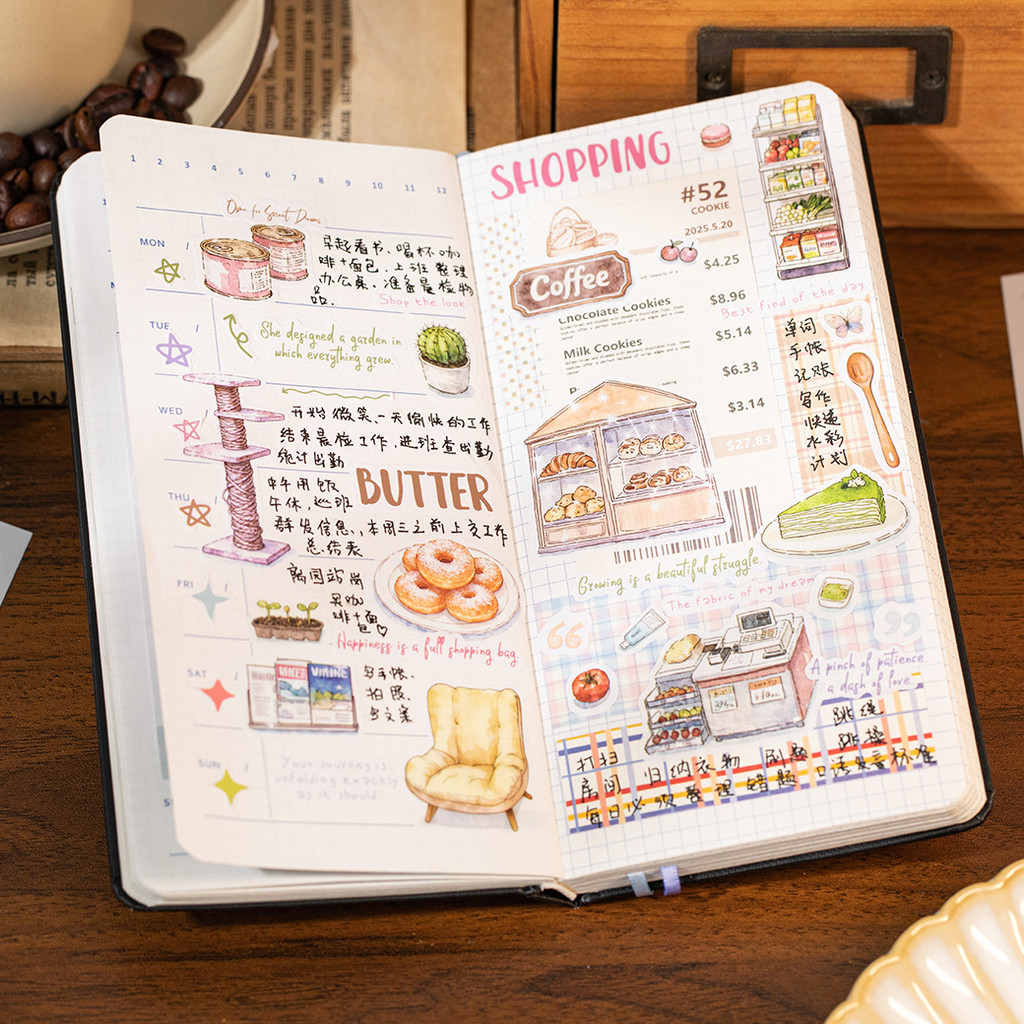 1 2 3 4 5 6 7 8 9 10 11 12
MON
早起看书、喝杯咖
啡+面包、上班整理
办公桌、准备最检物
品.
Shop the look
TUE
She designed a garden in
which everything grew.
WED
开始微笑、一天愉快的工作
结束最检工作、进班查出勤
统计出勤
THU
中午用饭
午休,巡班
群发信息、本周三之前上交工作
总结表
BUTTER
FRI
离园站岗
买咖
啡+面
包♡
Happiness is a full shopping bag.
SAT
写手帐.
拍照.
写文案
SUN
Your journey is
unfolding exactly
as it should
SHOPPING
#52
COOKIE
2025.5.20
Coffee
$4.25
Chocolate Cookies
$8.96
Milk Cookies
$5.14
$6.33
$3.14
$27.83
Best find of the day.
单词
手帐
记账
写作
快递
水彩
计划
Growing is a beautiful struggle.
The fabric of my dream
66
99
A pinch of patience
a dash of love.
打扫
房间 归纳衣物 刷题 跳绳
跳操
每日必须整理错题 口语发音标准